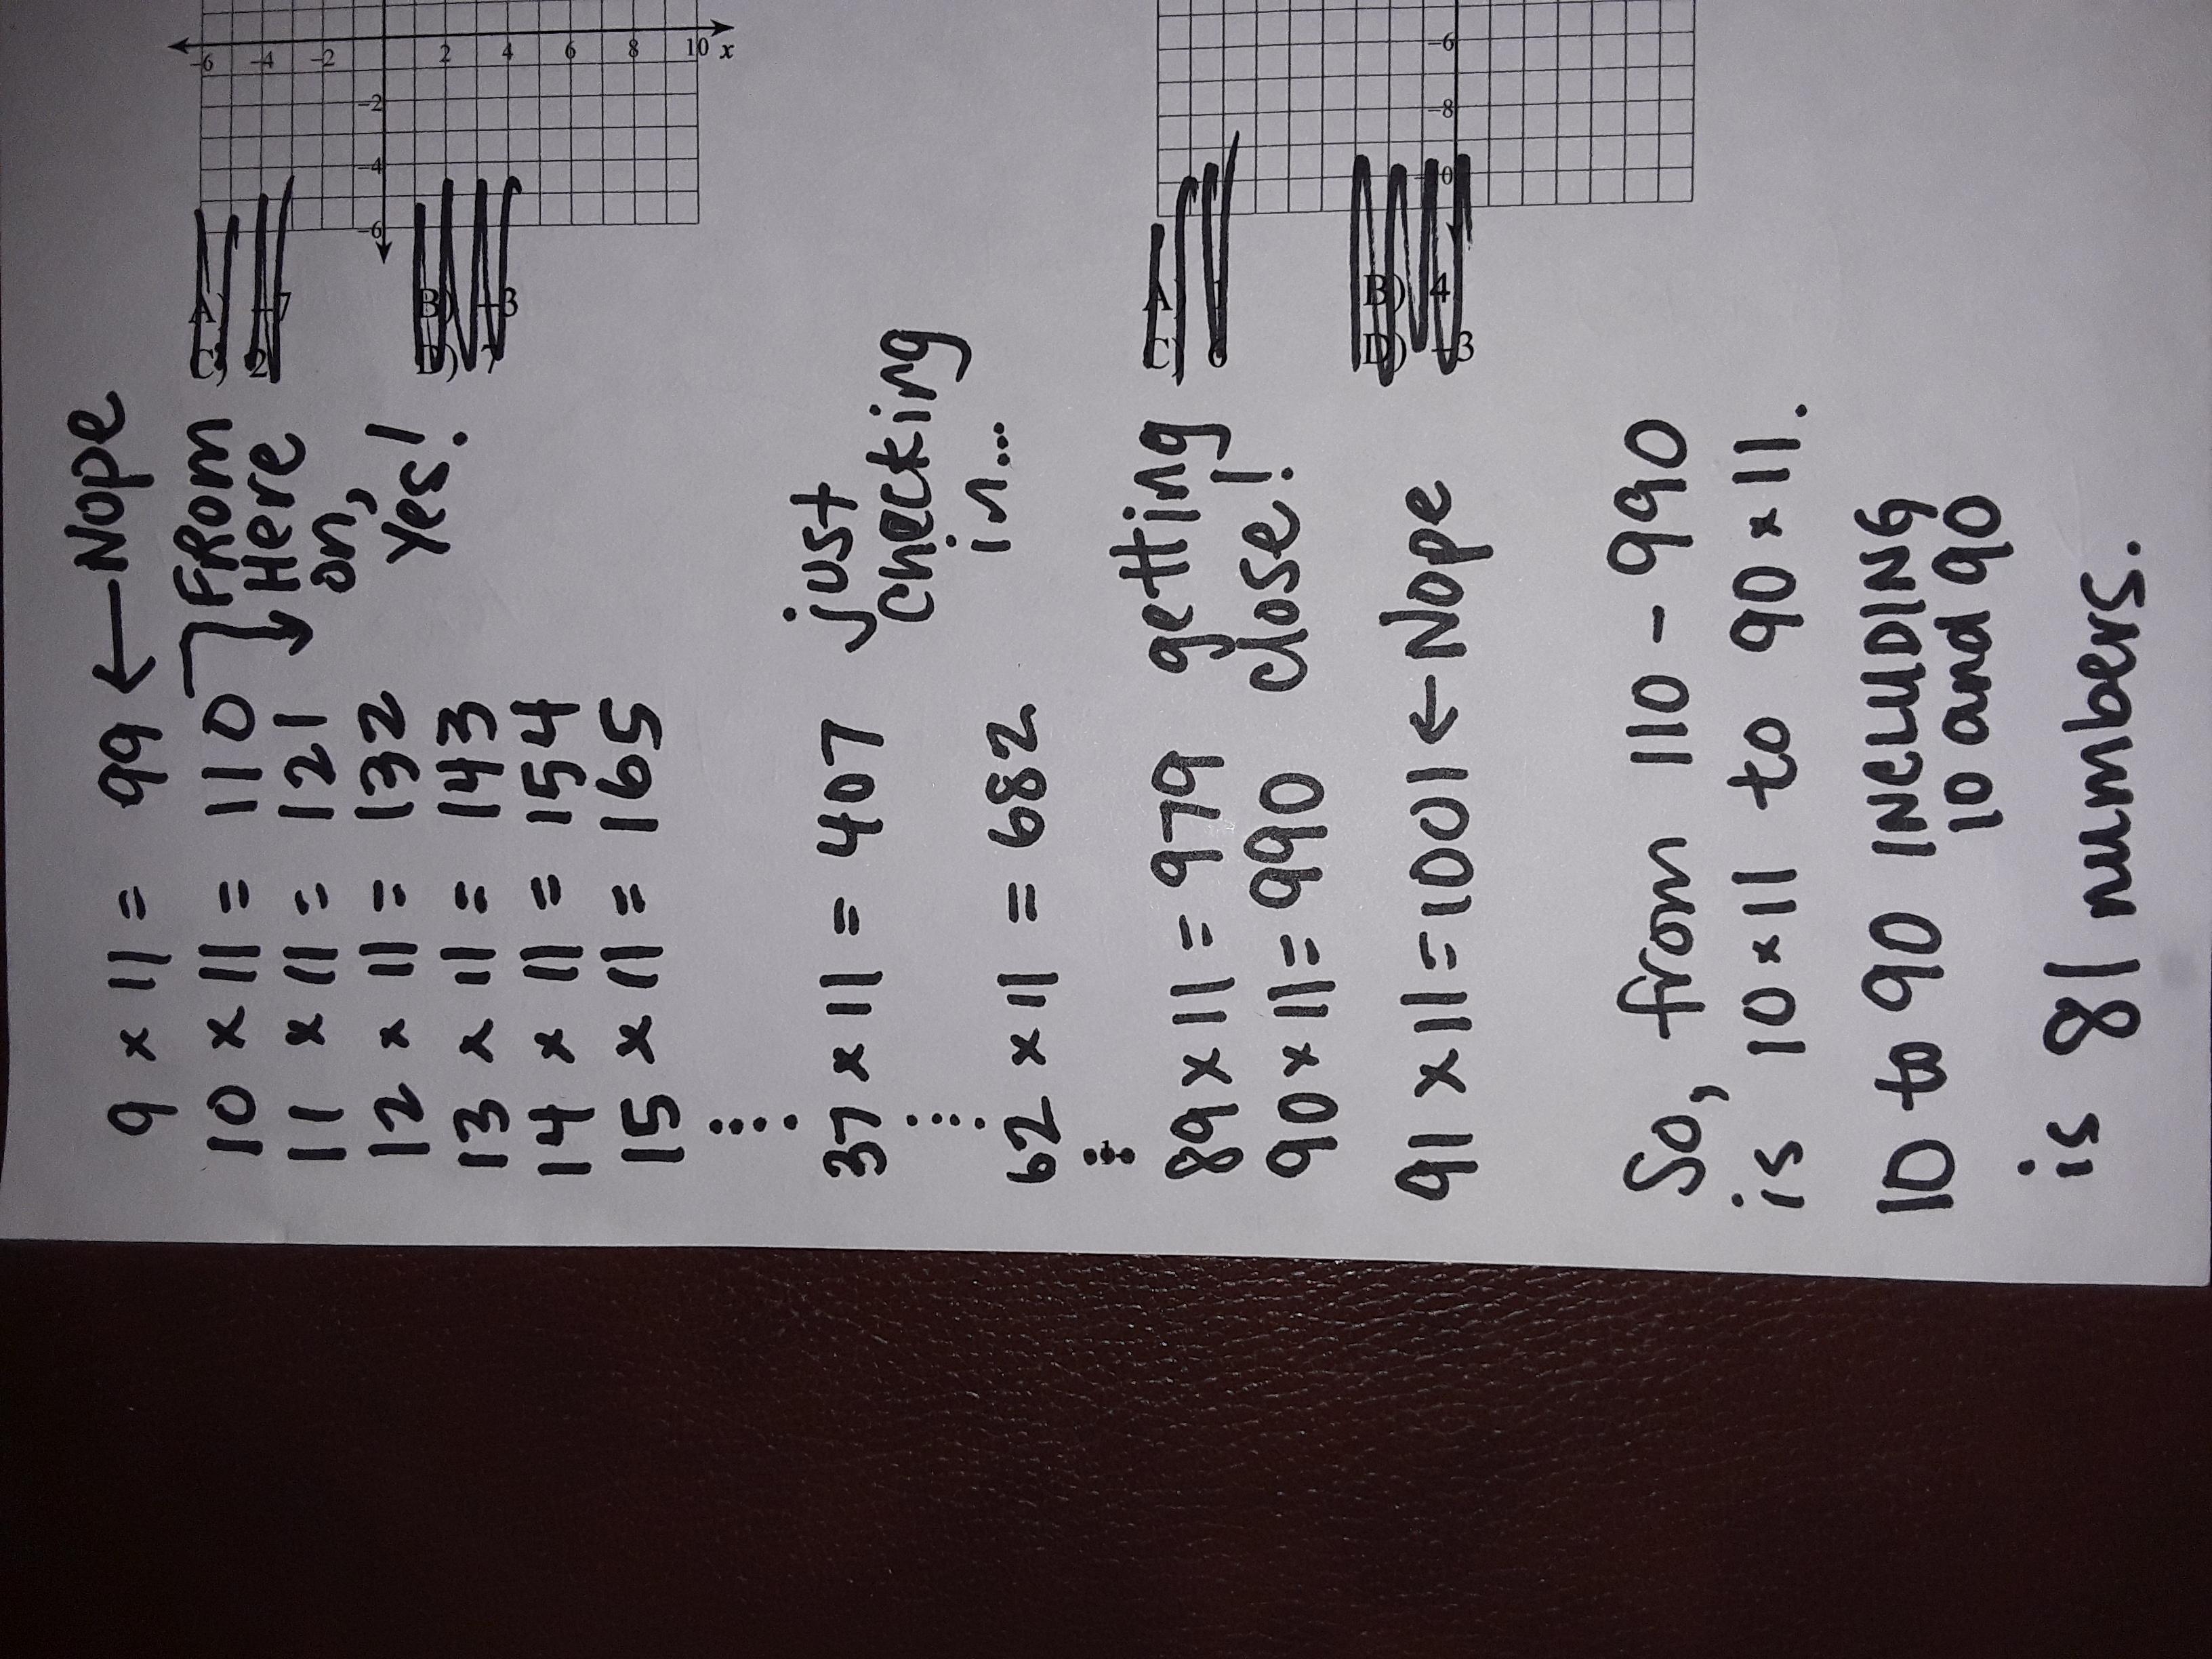 -6 -4 -2 2 4 6 8 10 x
-2
-4
-6
A) -7 B) -3
C) 2 D) 7
-6
-8
B) 4
D) -3
9 x 11 = 99 ← Nope
10 x 11 = 110 FRom
11 x 11 = 121 Here
12 x 11 = 132 on,
13 x 11 = 143 Yes!
14 x 11 = 154
15 x 11 = 165
37 x 11 = 407 just
checking
in...
62 x 11 = 682
89 x 11 = 979 getting
90 x 11 = 990 close!
91 x 11 = 1001 ← Nope
So, from 110 - 990
is 10 x 11 to 90 x 11.
10 to 90 INCLUDING
10 and 90
is 81 numbers.